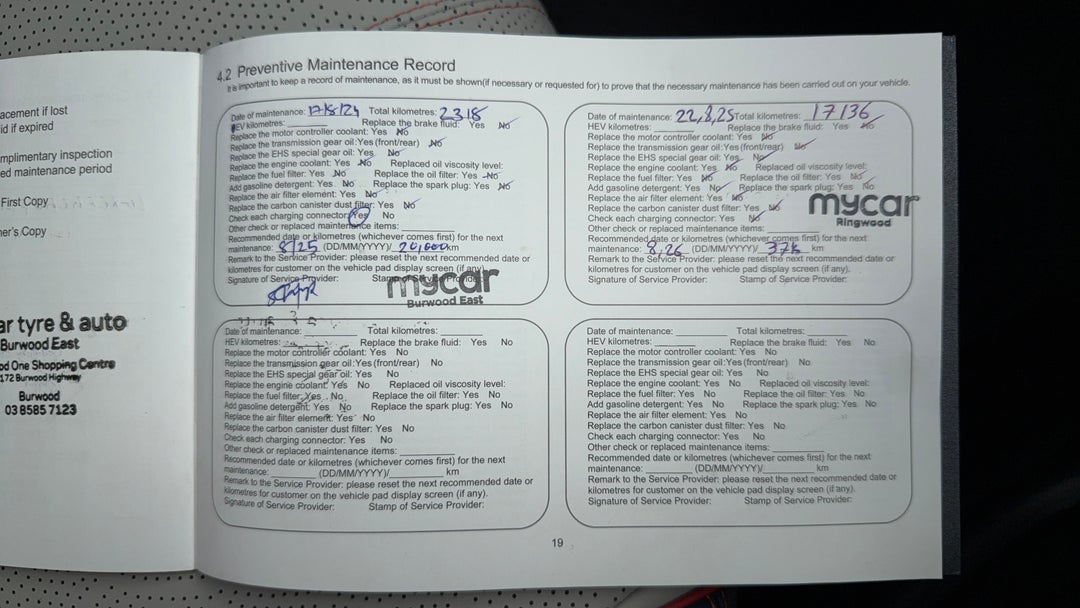 acement if lost
id if expired
mplimentary inspection
ed maintenance period
First Copy
ner's Copy
ar tyre & auto
Burwood East
od One Shopping Centre
172 Burwood Highway
Burwood
03 8585 7123
4.2 Preventive Maintenance Record
It is important to keep a record of maintenance, as it must be shown(if necessary or requested for) to prove that the necessary maintenance has been carried out on your vehicle.
Date of maintenance: 17/8/24 Total kilometres: 2318
HEV kilometres: Replace the brake fluid: Yes No
Replace the motor controller coolant: Yes No
Replace the transmission gear oil:Yes (front/rear) No
Replace the EHS special gear oil: Yes No
Replace the engine coolant: Yes No Replaced oil viscosity level:
Replace the fuel filter: Yes No Replace the oil filter: Yes No
Add gasoline detergent: Yes No Replace the spark plug: Yes No
Replace the air filter element: Yes No
Replace the carbon canister dust filter: Yes No
Check each charging connector: Yes No
Other check or replaced maintenance items:
Recommended date or kilometres (whichever comes first) for the next
maintenance: 8/25 (DD/MM/YYYY)/ 20,000km
Remark to the Service Provider: please reset the next recommended date or
kilometres for customer on the vehicle pad display screen (if any).
Signature of Service Provider: Stamp of Service Provider:
mycar
Burwood East
Date of maintenance: 22,8,25 Total kilometres: 17136
HEV kilometres: Replace the brake fluid: Yes No
Replace the motor controller coolant: Yes No
Replace the transmission gear oil:Yes (front/rear) No
Replace the EHS special gear oil: Yes No
Replace the engine coolant: Yes No Replaced oil viscosity level:
Replace the fuel filter: Yes No Replace the oil filter: Yes No
Add gasoline detergent: Yes No Replace the spark plug: Yes No
Replace the air filter element: Yes No
Replace the carbon canister dust filter: Yes No
Check each charging connector: Yes No
mycar
Ringwood
Other check or replaced maintenance items:
Recommended date or kilometres (whichever comes first) for the next
maintenance: 8,26 (DD/MM/YYYY)/ 37k km
Remark to the Service Provider: please reset the next recommended date or
kilometres for customer on the vehicle pad display screen (if any).
Signature of Service Provider: Stamp of Service Provider:
Date of maintenance: Total kilometres:
HEV kilometres: Replace the brake fluid: Yes No
Replace the motor controller coolant: Yes No
Replace the transmission gear oil:Yes (front/rear) No
Replace the EHS special gear oil: Yes No
Replace the engine coolant: Yes No Replaced oil viscosity level:
Replace the fuel filter: Yes No Replace the oil filter: Yes No
Add gasoline detergent: Yes No Replace the spark plug: Yes No
Replace the air filter element: Yes No
Replace the carbon canister dust filter: Yes No
Check each charging connector: Yes No
Other check or replaced maintenance items:
Recommended date or kilometres (whichever comes first) for the next
maintenance: (DD/MM/YYYY)/ km
Remark to the Service Provider: please reset the next recommended date or
kilometres for customer on the vehicle pad display screen (if any).
Signature of Service Provider: Stamp of Service Provider:
Date of maintenance: Total kilometres:
HEV kilometres: Replace the brake fluid: Yes No
Replace the motor controller coolant: Yes No
Replace the transmission gear oil:Yes (front/rear) No
Replace the EHS special gear oil: Yes No
Replace the engine coolant: Yes No Replaced oil viscosity level:
Replace the fuel filter: Yes No Replace the oil filter: Yes No
Add gasoline detergent: Yes No Replace the spark plug: Yes No
Replace the air filter element: Yes No
Replace the carbon canister dust filter: Yes No
Check each charging connector: Yes No
Other check or replaced maintenance items:
Recommended date or kilometres (whichever comes first) for the next
maintenance: (DD/MM/YYYY)/ km
Remark to the Service Provider: please reset the next recommended date or
kilometres for customer on the vehicle pad display screen (if any).
Signature of Service Provider: Stamp of Service Provider:
19